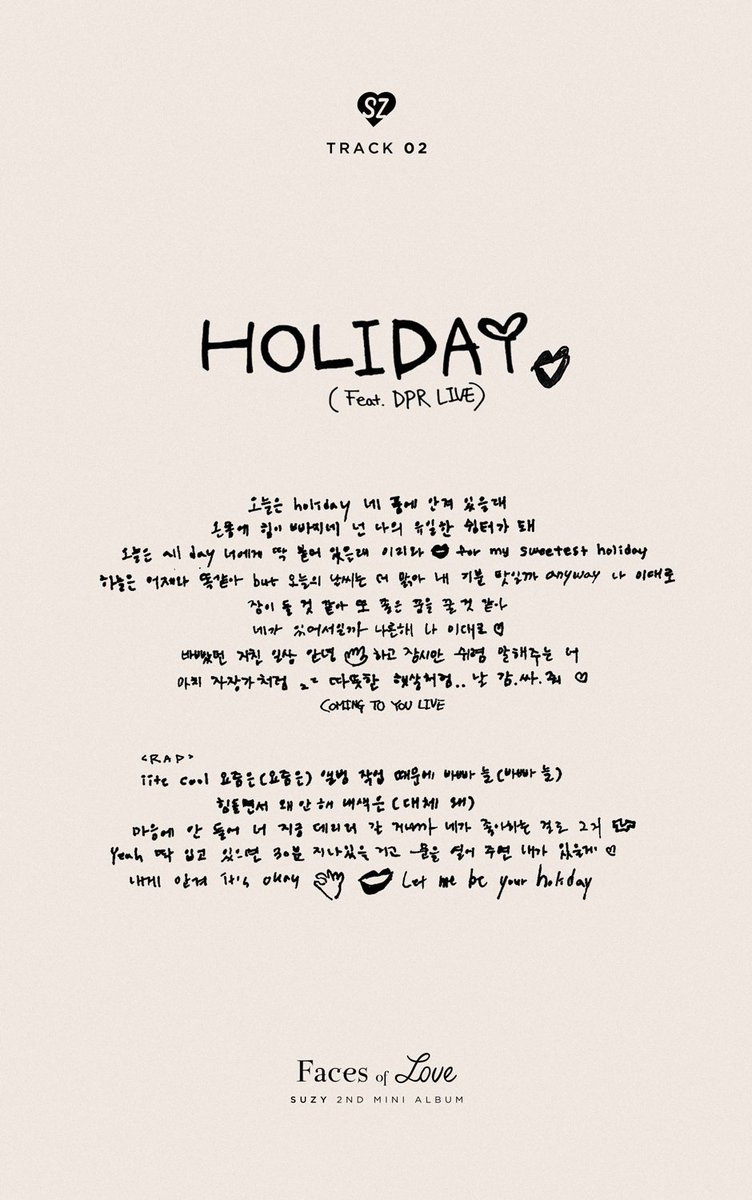 SZ
TRACK 02
HOLIDAY
(Feat. DPR LIVE)
오늘은 holiday 네 품에 안겨 있을래
온몸에 힘이 빠지네 넌 나의 유일한 쉼터가 돼
오늘은 all day 너에게 딱 붙어 있을래 이리와 for my sweetest holiday
하늘은 어제와 똑같아 but 오늘의 날씨는 더 맑아 내 기분 탓일까 anyway 나 이대로
잠이 들 것 같아 또 좋은 꿈을 꿀 것 같아
네가 있어서일까 나른해 나 이대로
바빴던 거친 일상 안녕 하고 잠시만 쉬렴 말해주는 너
마치 자장가처럼 따뜻한 햇살처럼.. 날 감.싸.줘
COMING TO YOU LIVE
<RAP>
iite cool 요즘은(요즘은) 앨범 작업 때문에 바빠 늘(바빠 늘)
힘들면서 왜 안 해 내색은 (대체 왜)
마음에 안 들어 너 지금 데리러 갈 거니까 네가 좋아하는 걸로 그거
Yeah 딱 입고 있으면 30분 지나있을 거고 문을 열어 주면 내가 있을게
내게 안겨 it's okay Let me be your holiday
Faces of Love
SUZY 2ND MINI ALBUM